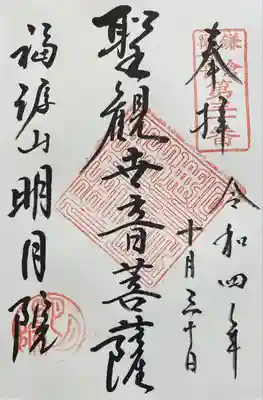 奉拝
令和四年
十月三十日
聖観世音菩薩
福源山明月院